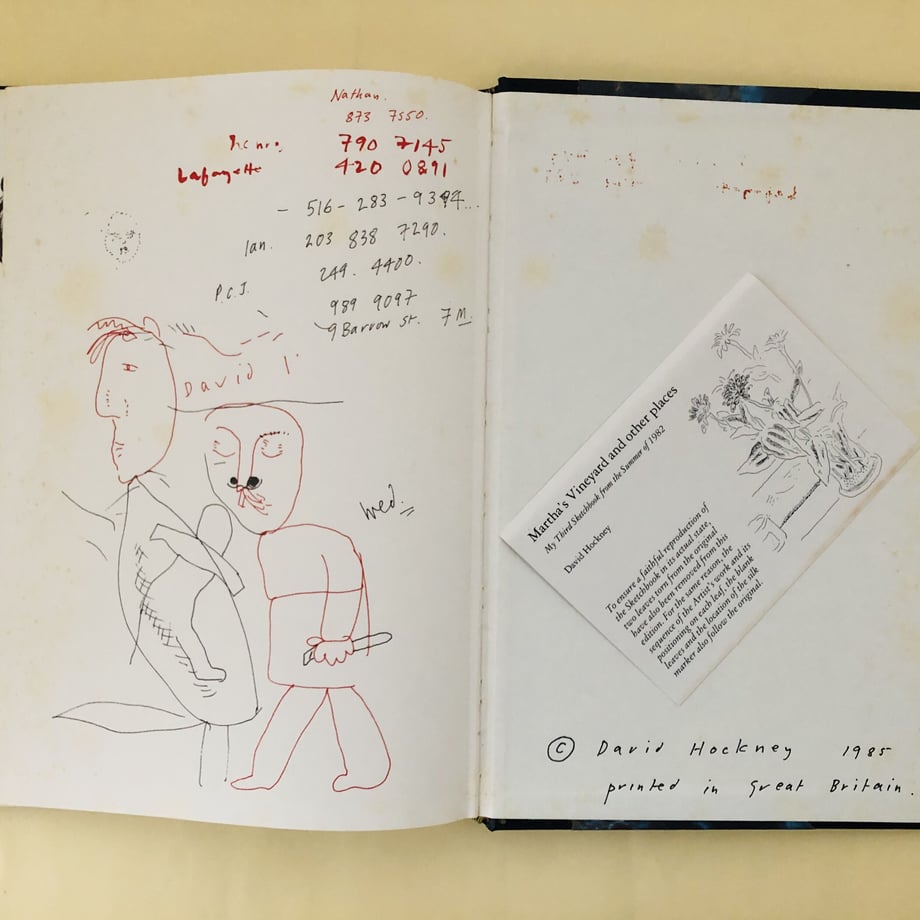 Nathan.
873 7550.
790 7145
Lafayette 420 0891
- 516-283-9394...
Ian. 203 838 7290.
P.C.J. 249. 4400.
989 9097
9 Barrow st. 7M.
David
Wed.
Martha's Vineyard and other places
My Third Sketchbook from the Summer of 1982
David Hockney
To ensure a faithful reproduction of
the Sketchbook in its actual state,
two leaves torn from the original
have also been removed from this
edition. For the same reason, the
sequence of the Artist's work and its
positioning on each leaf, the blank
leaves and the location of the silk
marker also follow the original.
© David Hockney 1985
printed in Great Britain.